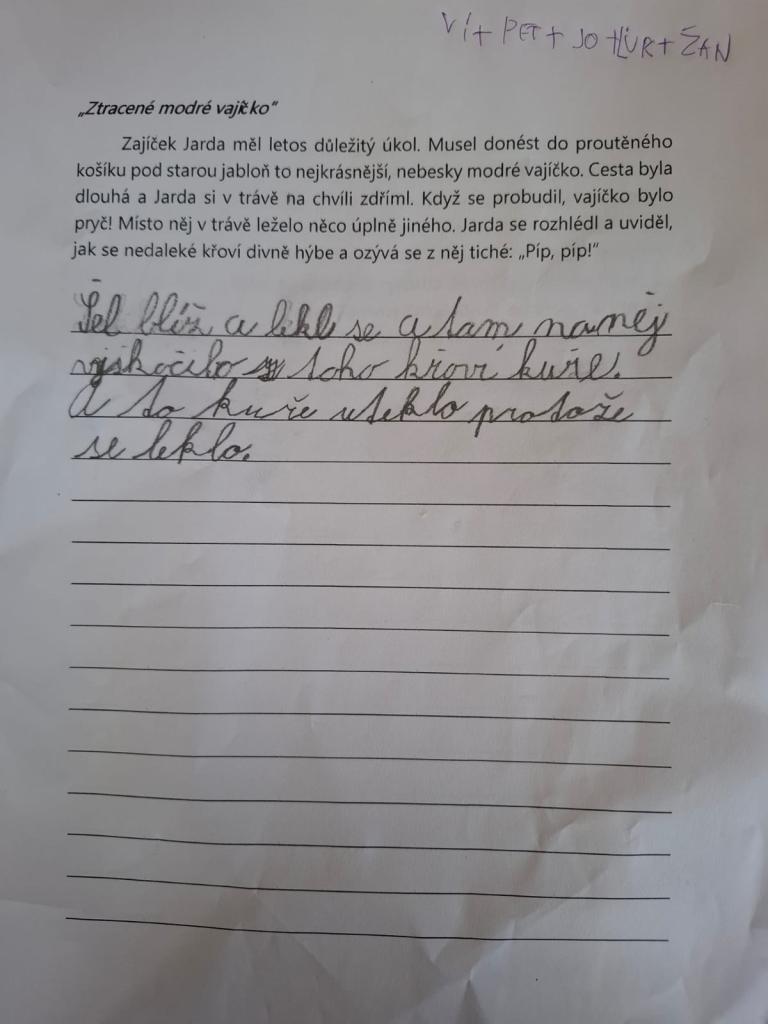 Ví+ PET+ JO +LUR+ ŽAN
„Ztracené modré vajíčko“
Zajíček Jarda měl letos důležitý úkol. Musel donést do proutěného
košíku pod starou jabloň to nejkrásnější, nebesky modré vajíčko. Cesta byla
dlouhá a Jarda si v trávě na chvíli zdříml. Když se probudil, vajíčko bylo
pryč! Místo něj v trávě leželo něco úplně jiného. Jarda se rozhlédl a uviděl,
jak se nedaleké křoví divně hýbe a ozývá se z něj tiché: „Píp, píp!“
Šel blíž a lekl se a tam naněj
vyskočilo toho křoví kuře.
A to kuře uteklo protože
se leklo.